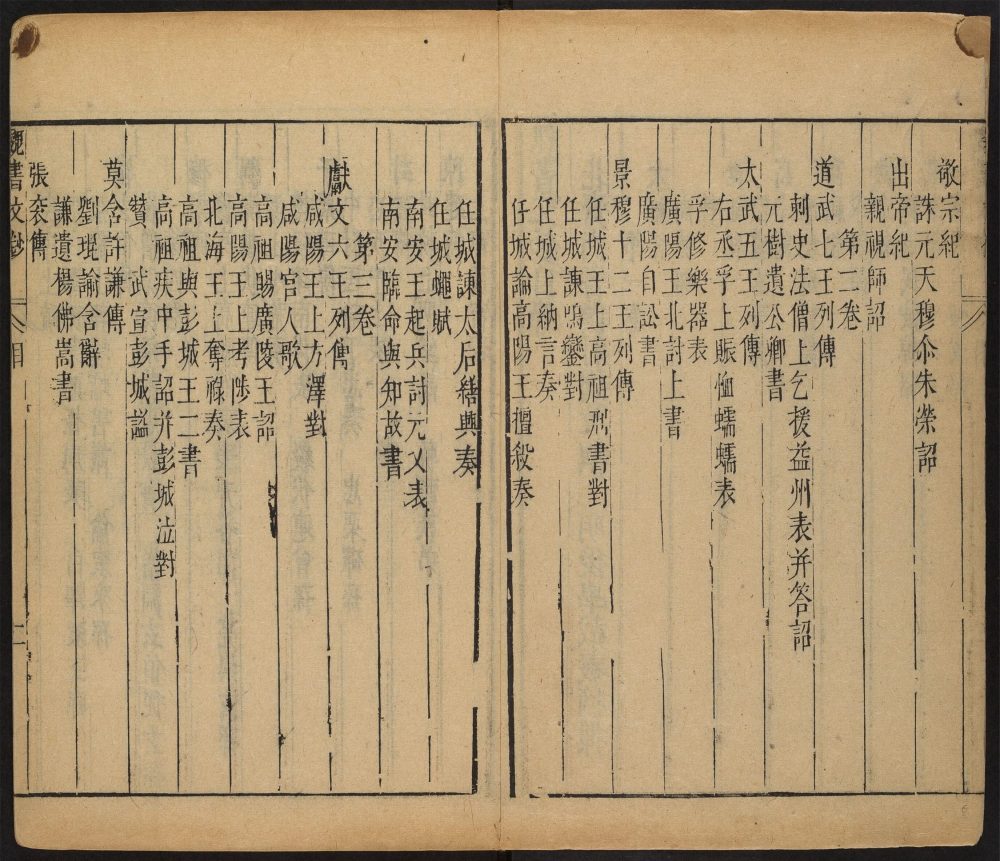 敬宗紀
誅元天穆尒朱榮詔
出帝紀
親視師詔
第二卷
道武七王列傳
刺史法僧上乞援益州表并答詔
元樹遺公卿書
太武五王列傳
右丞孚上賑恤蠕蠕表
孚修樂器表
廣陽王北討上書
廣陽自訟書
景穆十二王列傳
任城王上高祖刑書對
任城諫鳴鑾對
任城上納言奏
任城論高陽王擅殺奏
任城諫太后繕興奏
任城蠅賦
南安王起兵討元乂表
南安臨命與知故書
第三卷
獻文六王列傳
咸陽王上方澤對
咸陽宮人歌
高祖賜廣陵王詔
高陽王上考陟表
北海王上奪祿奏
高祖與彭城王二書
高祖疾中手詔并彭城泣對
贊 武宣彭城謚
莫含許謙傳
劉琨諭含辭
謙遺楊佛嵩書
張袞傳
魏書文鈔 目 二